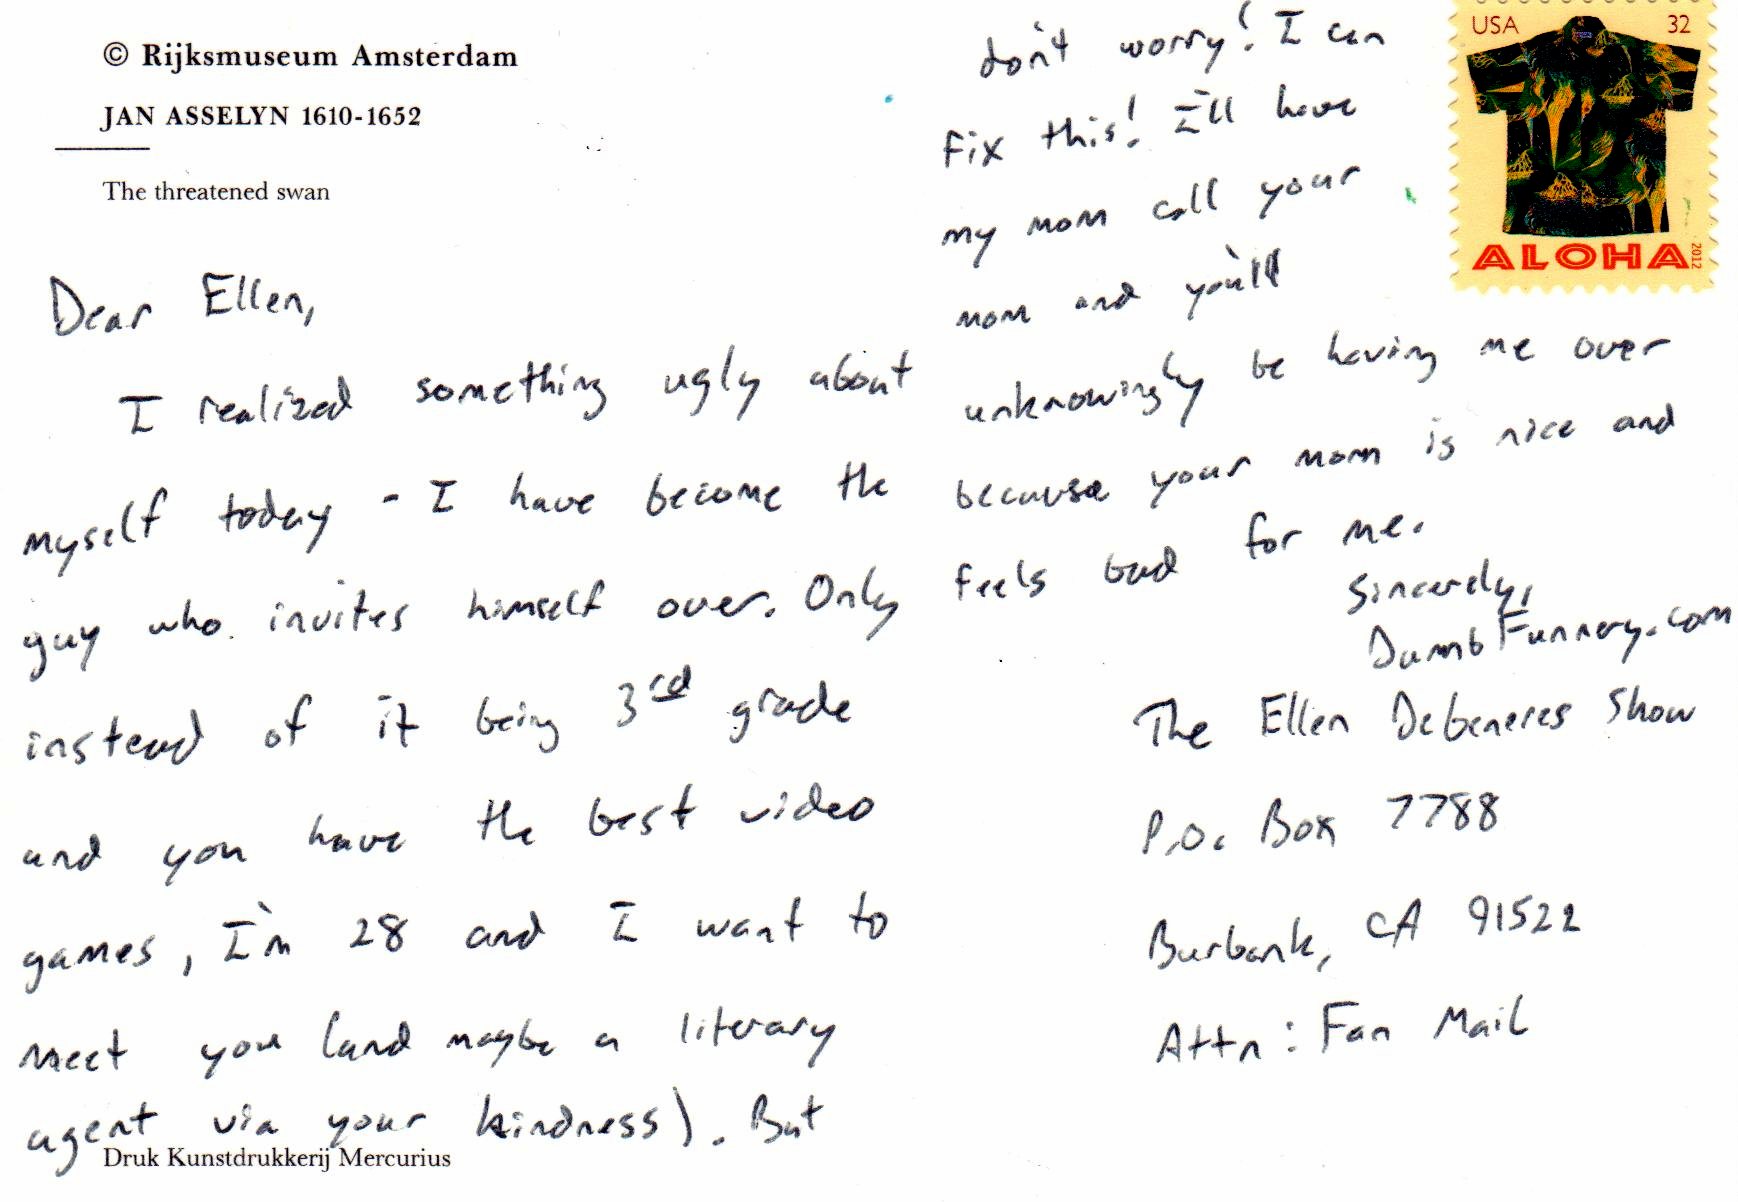 © Rijksmuseum Amsterdam
JAN ASSELYN 1610-1652
The threatened swan
Dear Ellen,
I realized something ugly about
myself today - I have become the
guy who invites himself over. Only
instead of it being 3rd grade
and you have the best video
games, I'm 28 and I want to
meet you (and maybe a literary
agent via your kindness). But
Druk Kunstdrukkerij Mercurius
don't worry! I can
fix this! I'll have
my mom call your
mom and you'll
unknowingly be having me over
because your mom is nice and
feels bad for me.
Sincerely,
DumbFunnery.com
USA 32
ALOHA
2012
The Ellen Degeneres Show
P.O. Box 7788
Burbank, CA 91522
Attn: Fan Mail